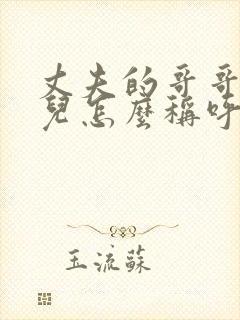 丈夫的哥哥
兒怎麼稱呼
玉流蘇